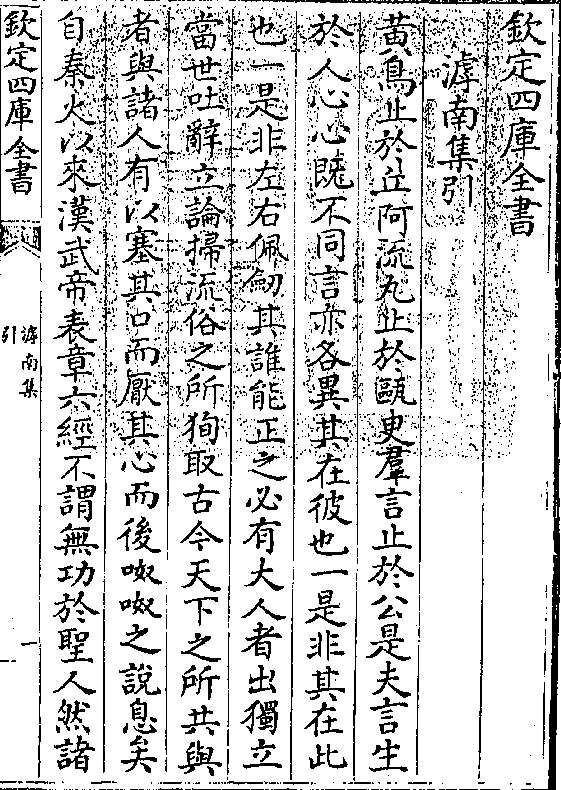 欽定四庫全書
滹南集引
黃鳥止於丘阿流丸止於甌臾羣言止於公是夫言生
於人心心既不同言亦各異其在彼也一是非其在此
也一是非左右佩劒其誰能正之必有大人者出獨立
當世吐辭立論掃流俗之所狥取古今天下之所共與
者與諸人有以塞其口而厭其心而後呶呶之說息矣
自秦火以來漢武帝表章六經不謂無功於聖人然諸
欽定四庫全書
滹南集
引
一